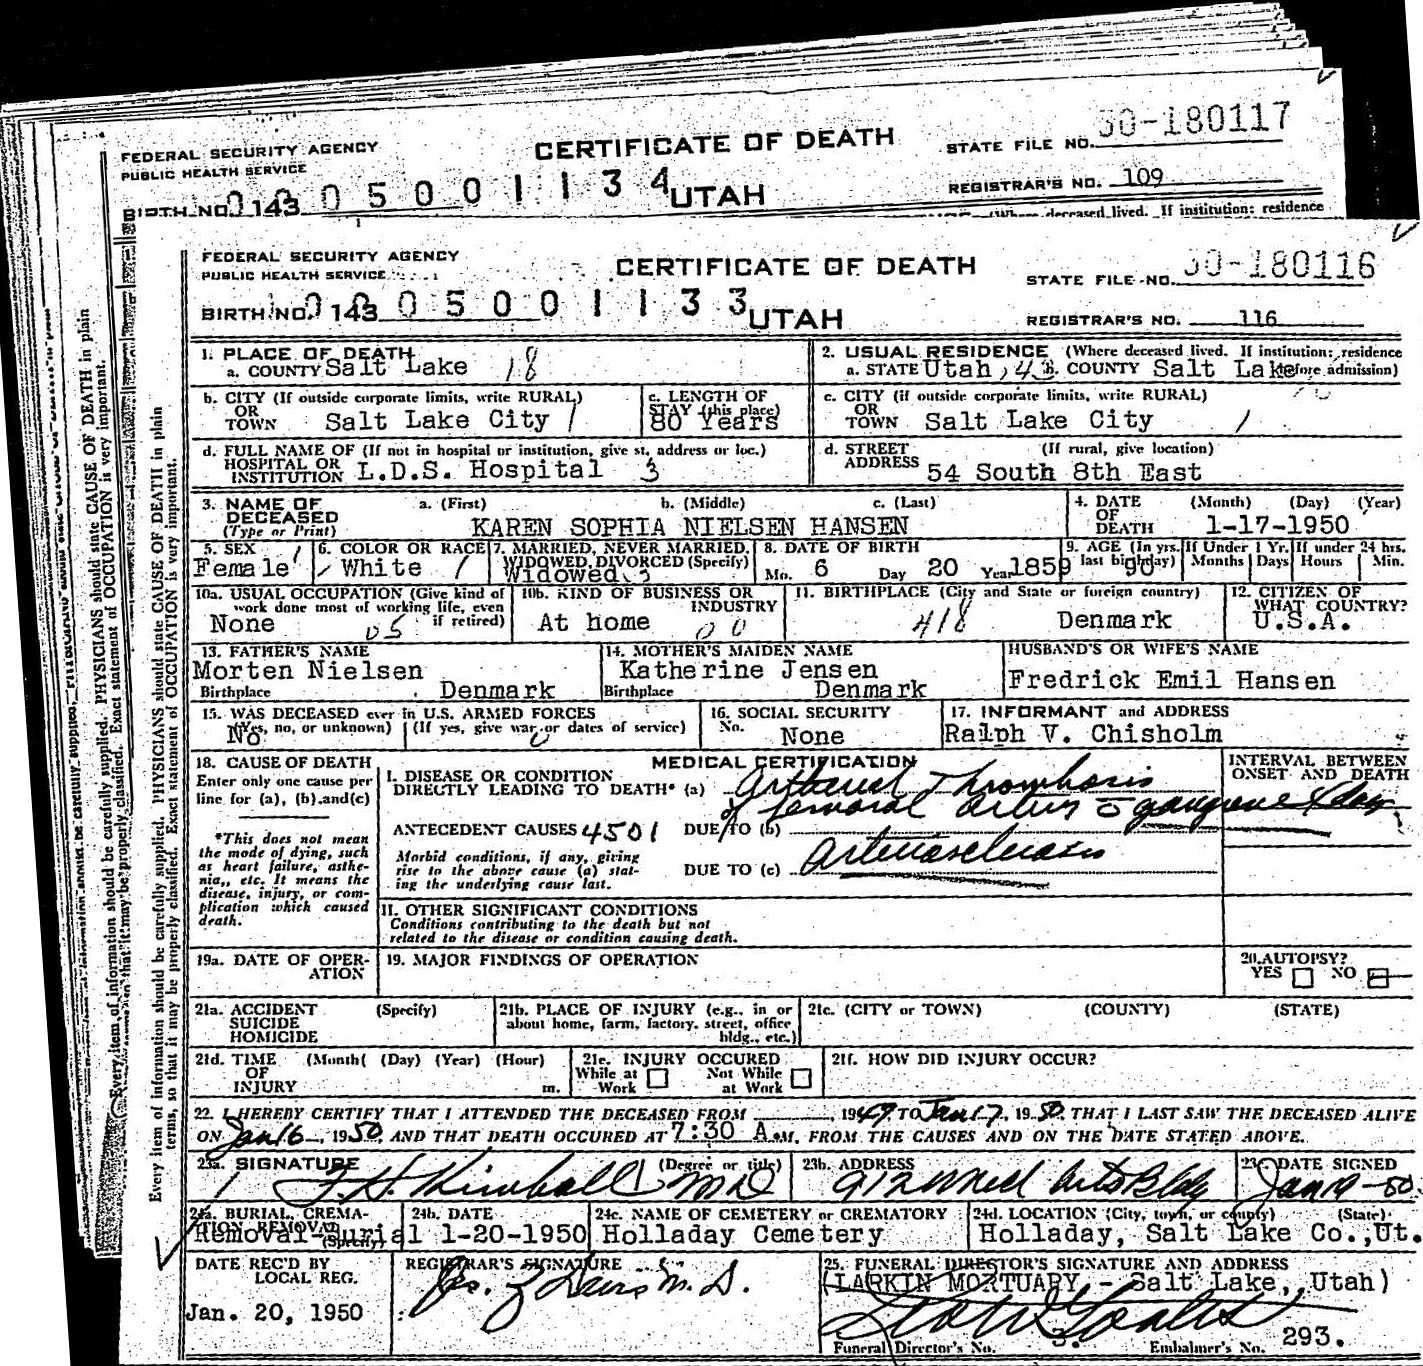 FEDERAL SECURITY AGENCY
PUBLIC HEALTH SERVICE
CERTIFICATE OF DEATH
STATE FILE NO. 50-180117
BIRTH NO. 143 0005001134 UTAH
REGISTRAR'S NO. 109
(Where deceased lived. If institution: residence
FEDERAL SECURITY AGENCY
PUBLIC HEALTH SERVICE
CERTIFICATE OF DEATH
STATE FILE NO. 50-180116
BIRTH NO. 143 0005001133 UTAH
REGISTRAR'S NO. 116
1. PLACE OF DEATH
a. COUNTY Salt Lake 18
2. USUAL RESIDENCE (Where deceased lived. If institution: residence
a. STATE Utah, 43 b. COUNTY Salt Lake before admission)
b. CITY (If outside corporate limits, write RURAL)
OR
TOWN Salt Lake City 1
c. LENGTH OF
STAY (this place)
80 Years
c. CITY (if outside corporate limits, write RURAL)
OR
TOWN Salt Lake City 1
d. FULL NAME OF (If not in hospital or institution, give st. address or loc.)
HOSPITAL OR
INSTITUTION L.D.S. Hospital 3
d. STREET (If rural, give location)
ADDRESS 54 South 8th East
3. NAME OF DECEASED (Type or Print)
a. (First) b. (Middle) c. (Last)
KAREN SOPHIA NIELSEN HANSEN
4. DATE OF DEATH (Month) (Day) (Year)
1-17-1950
5. SEX 1
Female
6. COLOR OR RACE
White 1
7. MARRIED, NEVER MARRIED,
WIDOWED, DIVORCED (Specify)
Widowed 3
8. DATE OF BIRTH
Mo. 6 Day 20 Year 1859
9. AGE (In yrs. last birthday) 90
If Under 1 Yr. Months Days
If under 24 hrs. Hours Min.
10a. USUAL OCCUPATION (Give kind of
work done most of working life, even
if retired)
None 05
10b. KIND OF BUSINESS OR
INDUSTRY
At home 00
11. BIRTHPLACE (City and State or foreign country)
418 Denmark
12. CITIZEN OF
WHAT COUNTRY?
U.S.A.
13. FATHER'S NAME
Morten Nielsen
Birthplace Denmark
14. MOTHER'S MAIDEN NAME
Katherine Jensen
Birthplace Denmark
HUSBAND'S OR WIFE'S NAME
Fredrick Emil Hansen
15. WAS DECEASED ever in U.S. ARMED FORCES
(Yes, no, or unknown) (If yes, give war or dates of service)
No 0
16. SOCIAL SECURITY
No. None
17. INFORMANT and ADDRESS
Ralph V. Chisholm
18. CAUSE OF DEATH
Enter only one cause per
line for (a), (b) and (c)
*This does not mean
the mode of dying, such
as heart failure, asthe-
nia, etc. It means the
disease, injury, or com-
plication which caused
death.
MEDICAL CERTIFICATION
INTERVAL BETWEEN
ONSET AND DEATH
I. DISEASE OR CONDITION
DIRECTLY LEADING TO DEATH* (a) Arterial Thrombosis
of femoral artery c̄ gangrene
ANTECEDENT CAUSES 4501 DUE TO (b)
Morbid conditions, if any, giving
rise to the above cause (a) stat-
ing the underlying cause last.
DUE TO (c) Arteriosclerosis
II. OTHER SIGNIFICANT CONDITIONS
Conditions contributing to the death but not
related to the disease or condition causing death.
19a. DATE OF OPER-
ATION
19. MAJOR FINDINGS OF OPERATION
20. AUTOPSY?
YES NO
21a. ACCIDENT (Specify)
SUICIDE
HOMICIDE
21b. PLACE OF INJURY (e.g., in or
about home, farm, factory, street, office
bldg., etc.)
21c. (CITY or TOWN) (COUNTY) (STATE)
21d. TIME (Month) (Day) (Year) (Hour)
OF
INJURY m.
21e. INJURY OCCURED
While at Work Not While at Work
21f. HOW DID INJURY OCCUR?
22. I HEREBY CERTIFY THAT I ATTENDED THE DECEASED FROM 1949 TO Jan 17, 1950. THAT I LAST SAW THE DECEASED ALIVE
ON Jan 16, 1950, AND THAT DEATH OCCURED AT 7:30 A.M. FROM THE CAUSES AND ON THE DATE STATED ABOVE.
23a. SIGNATURE (Degree or title)
F. H. Kimball MD
23b. ADDRESS
912 Med Arts Bldg
23c. DATE SIGNED
Jan 19-50.
24a. BURIAL, CREMA-
TION, REMOVAL
(Specify)
Removal-Burial
24b. DATE
1-20-1950
24c. NAME OF CEMETERY or CREMATORY
Holladay Cemetery
24d. LOCATION (City, town, or county) (State)
Holladay, Salt Lake Co., Ut.
DATE REC'D BY
LOCAL REG.
Jan. 20, 1950
REGISTRAR'S SIGNATURE
M.D.
25. FUNERAL DIRECTOR'S SIGNATURE AND ADDRESS
(LARKIN MORTUARY - Salt Lake, Utah)
Funeral Director's No. 3. Embalmer's No. 293.
Every item of information should be carefully supplied. PHYSICIANS should state CAUSE OF DEATH in plain
terms, so that it may be properly classified. Exact statement of OCCUPATION is very important.